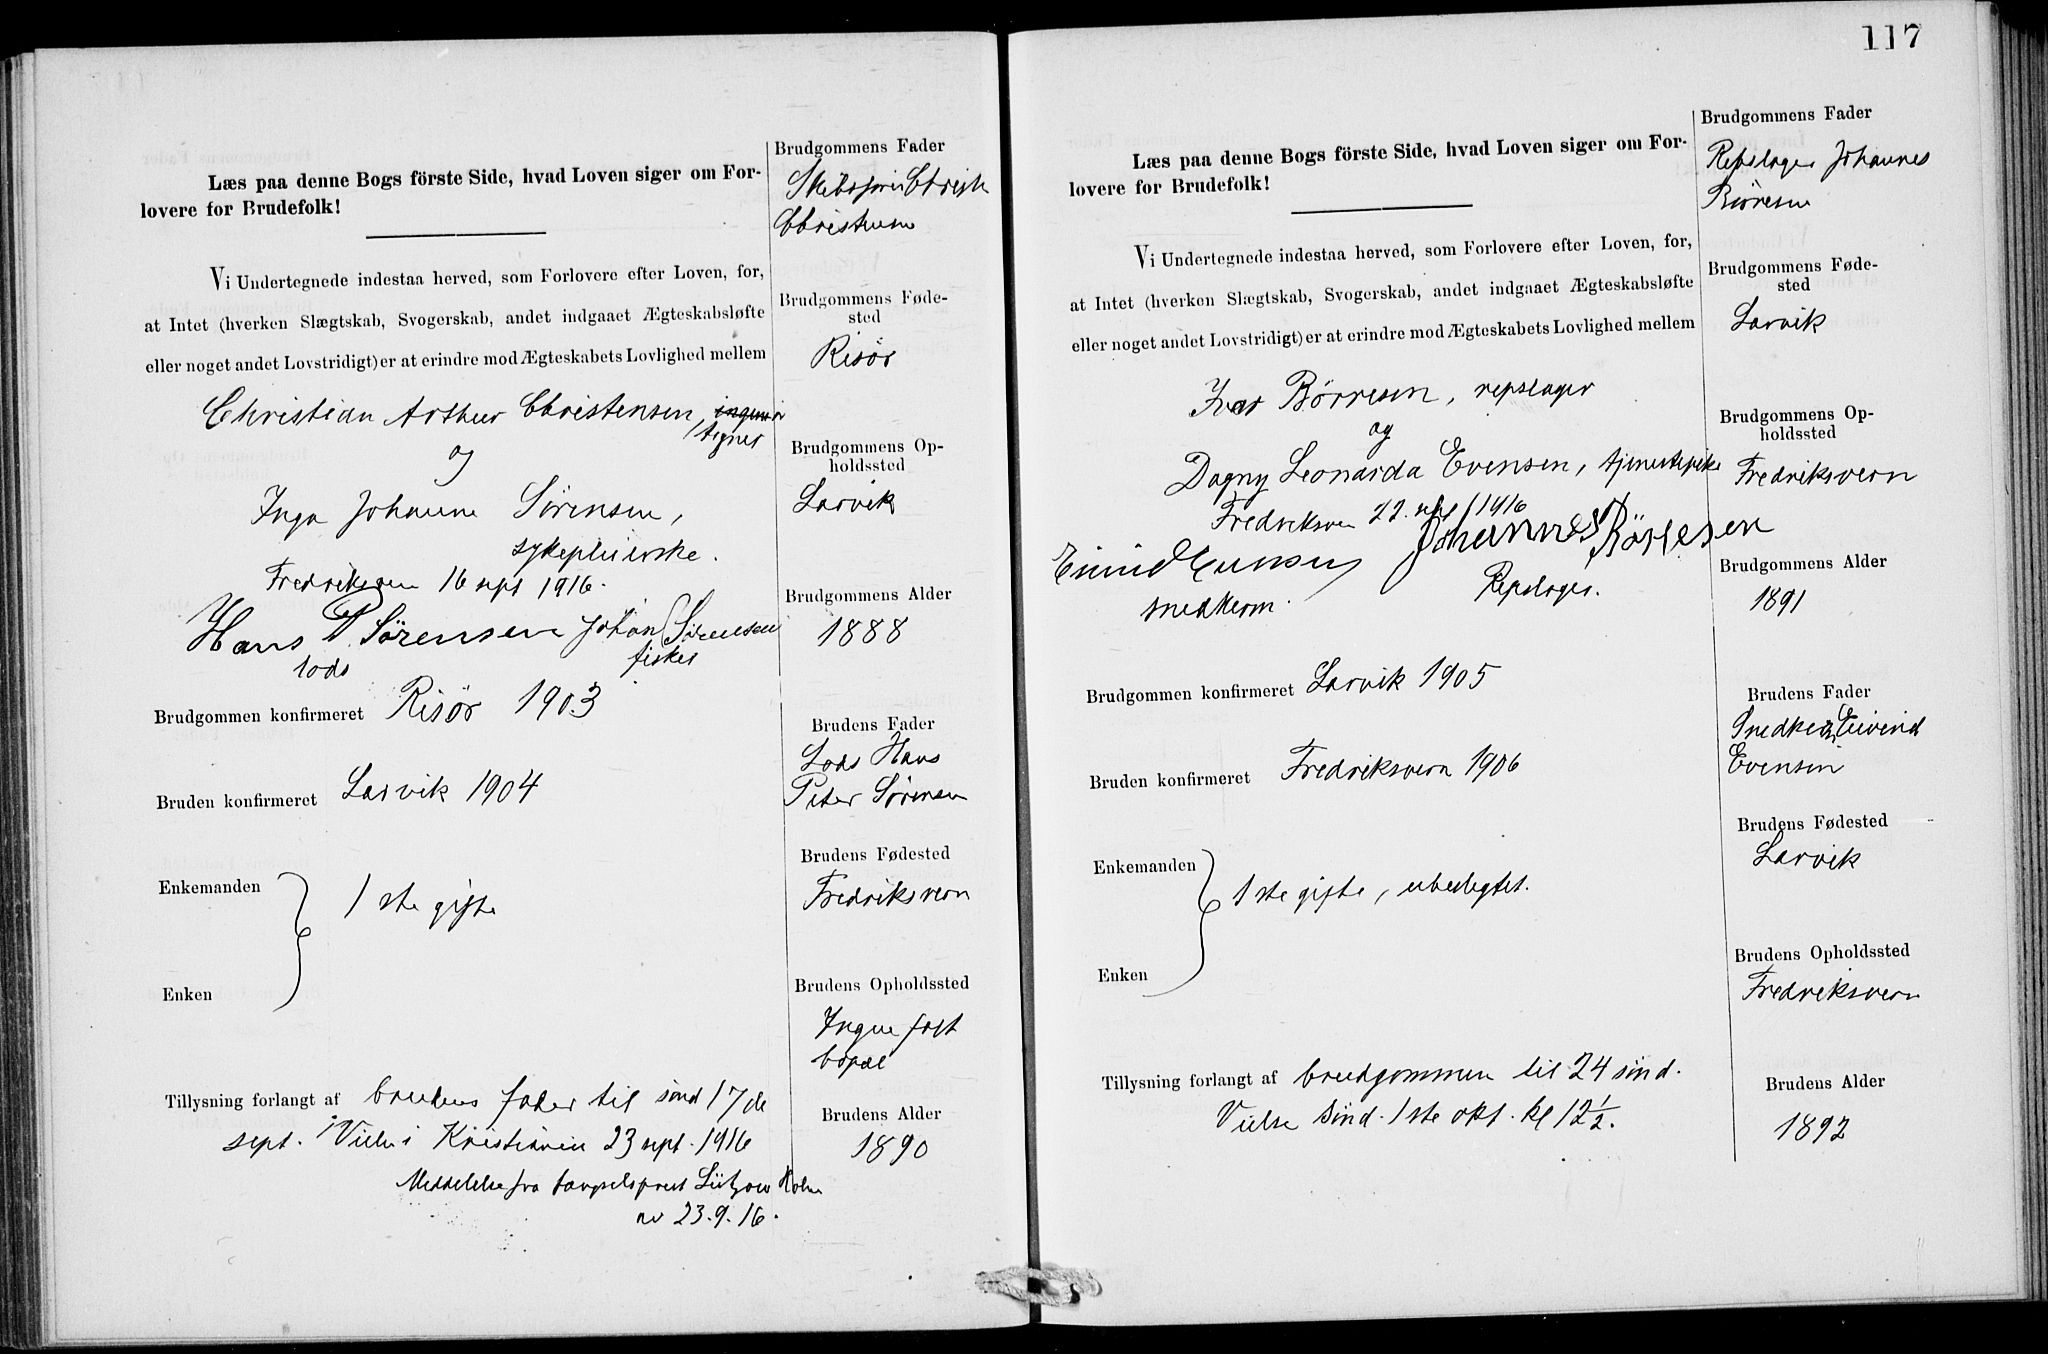 Læs paa denne Bogs förste Side, hvad Loven siger om For-
lovere for Brudefolk!
Vi Undertegnede indestaa herved, som Forlovere efter Loven, for,
at Intet (hverken Slægtskab, Svogerskab, andet indgaaet Ægteskabsløfte
eller noget andet Lovstridigt) er at erindre mod Ægteskabets Lovlighed mellem
Christian Arthur Christensen, ingeniør
tegner
og
Inga Johanne Sörensen,
sykepleierske.
Fredriksvern 16 sept 1916.
Hans P Sörensen Johan Sörensen
lods fisker
Brudgommen konfirmeret Risør 1903
Bruden konfirmeret Larvik 1904
Enkemanden
1ste gifte
Enken
Tillysning forlangt af brudens fader til sönd 17de
sept. Vielse i Kristiania 23 sept. 1916
Meddelelse fra fængselsprest Lützow Holm
av 23.9.16.
Brudgommens Fader
Skibsfører Christ
Christensen
Brudgommens Føde-
sted
Risör
Brudgommens Op-
holdssted
Larvik
Brudgommens Alder
1888
Brudens Fader
Lods Hans
Peter Sörensen
Brudens Fødested
Fredriksvern
Brudens Opholdssted
Ingen fast
bopæl
Brudens Alder
1890
117
Læs paa denne Bogs förste Side, hvad Loven siger om For-
lovere for Brudefolk!
Vi Undertegnede indestaa herved, som Forlovere efter Loven, for,
at Intet (hverken Slægtskab, Svogerskab, andet indgaaet Ægteskabsløfte
eller noget andet Lovstridigt) er at erindre mod Ægteskabets Lovlighed mellem
Ivar Börresen, repslager
og
Dagny Leonarda Evensen, tjenestepike
Fredriksvern 22. sept 1916
Eivind Evensen Johannes Börresen
snedkerm. Repslager.
Brudgommen konfirmeret Larvik 1905
Bruden konfirmeret Fredriksvern 1906
Enkemanden
1ste gifte, ubeslegtet.
Enken
Tillysning forlangt af brudgommen til 24 sönd.
Vielse Sönd. 1ste okt. kl 12½.
Brudgommens Fader
Repslager Johannes
Börresen
Brudgommens Føde-
sted
Larvik
Brudgommens Op-
holdssted
Fredriksvern
Brudgommens Alder
1891
Brudens Fader
Snedkerm Eivind
Evensen
Brudens Fødested
Larvik
Brudens Opholdssted
Fredriksvern
Brudens Alder
1892